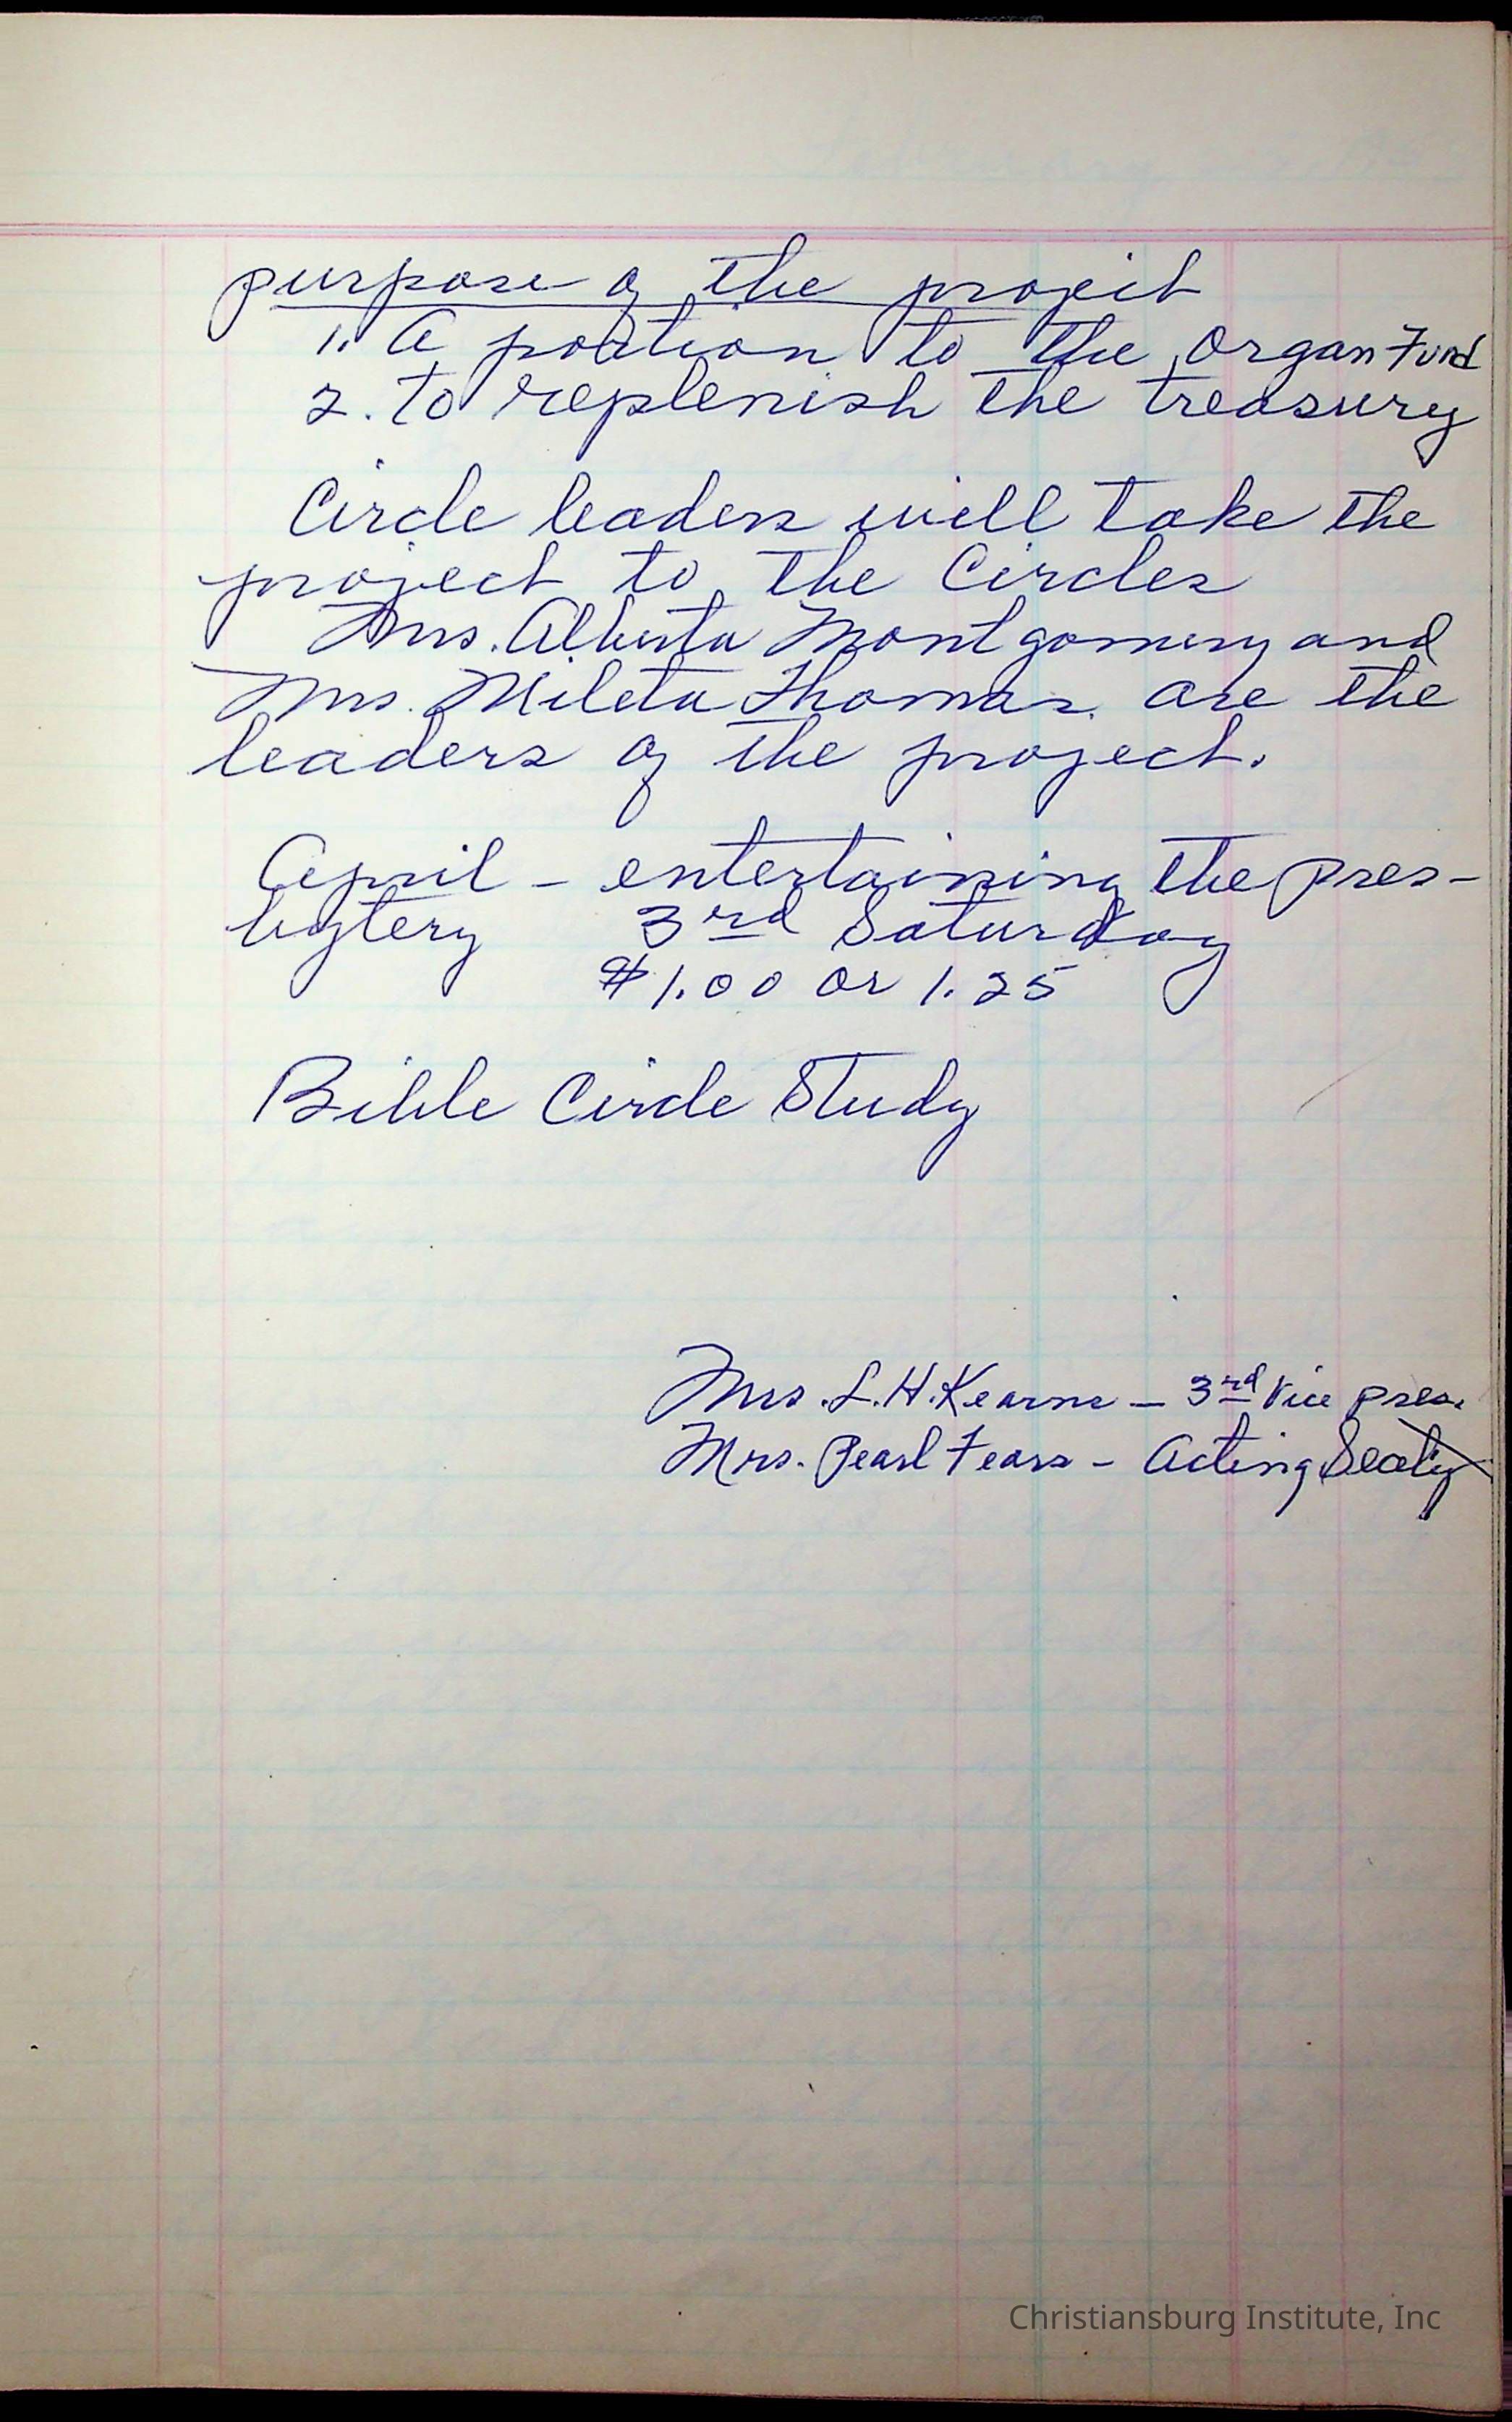 purpose of the project
1. A portion to the Organ Fund
2. to replenish the treasury
Circle leaders will take the
project to the Circles
Mrs. Alberta Montgomery and
Mrs. Mileta Thomas are the
leaders of the project.
April - entertaining the Pres-
bytery 3rd Saturday
$1.00 or 1.25
Bible Circle Study
Mrs. L. H. Kearns - 3rd Vice pres.
Mrs. Pearl Fears - Acting Secty
Christiansburg Institute, Inc